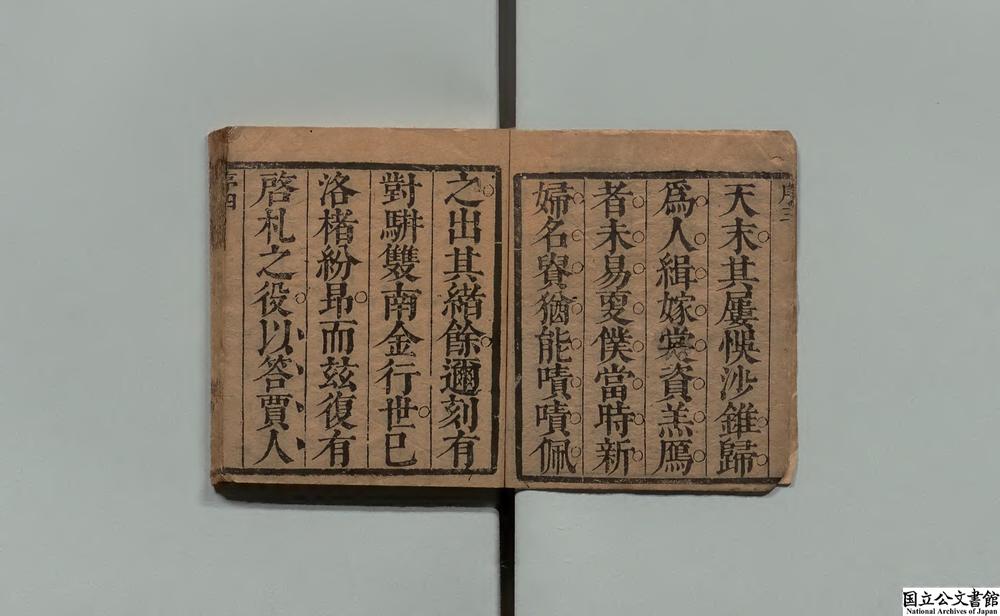 序三
天末其屢悞沙錐歸
爲人緝嫁裳資羔鴈
者未易更僕當時新
婦名猶能嘖嘖佩
之出其緒餘邇刻有
對駢雙南金行世已
洛楮紛昂而玆復有
啓札之役以答賈人
序四
国立公文書館
National Archives of Japan